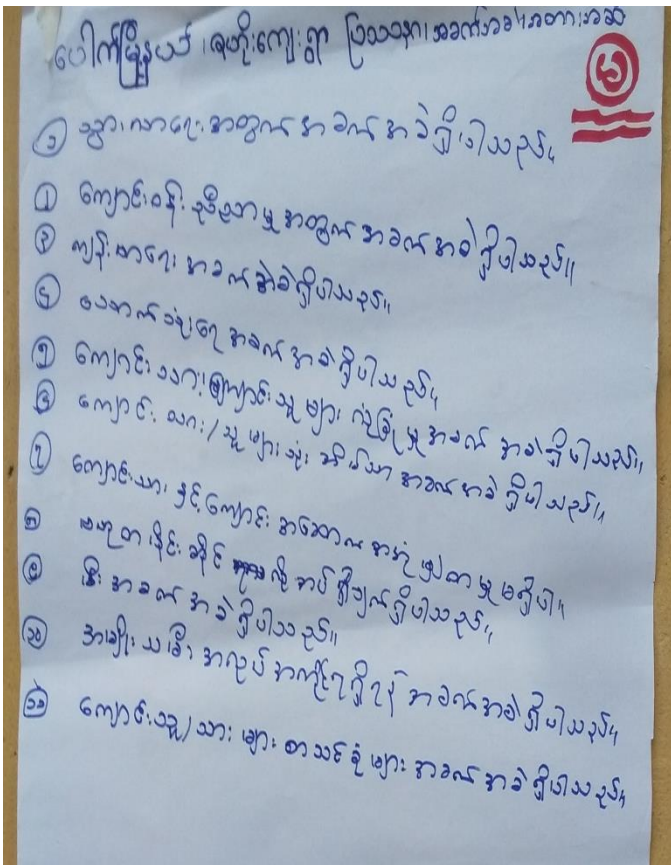 ပေါက်မြို့နယ်၊ ဇဟိုးကျေးရွာ ပြဿနာ၊ အခက်အခဲ၊ အတား၊အဆီး
၁ သွားလာရေးအတွက် အခက်အခဲရှိပါသည်။
၂ ကျောင်းဝန်း ညစ်ညမ်းမှုအတွက် အခက်အခဲရှိပါသည်။
၃ ကျန်းမာရေး အခက်အခဲရှိပါသည်။
၄ သောက်သုံးရေ အခက်အခဲရှိပါသည်။
၅ ကျောင်းသား/ကျောင်းသူများ လုံခြုံမှုအခက်အခဲရှိပါသည်။
၆ ကျောင်းသား/သူများသုံး အိမ်သာ အခက်အခဲရှိပါသည်။
၇ ကျောင်းသားနှင့်ကျောင်းအဆောက်အအုံမျှတမှုမရှိပါ။
၈ ဗဟုတပိုင်းဆိုင် လိုအပ်ချက်ရှိပါသည်။
၉ မီးအခက်အခဲရှိပါသည်။
၁၀ အမျိုးသမီး အလုပ်အကိုင်ရရှိရန် အခက်အခဲရှိပါသည်။
၁၁ ကျောင်းသူ/သားများ စာသင်ခုံများ အခက်အခဲရှိပါသည်။